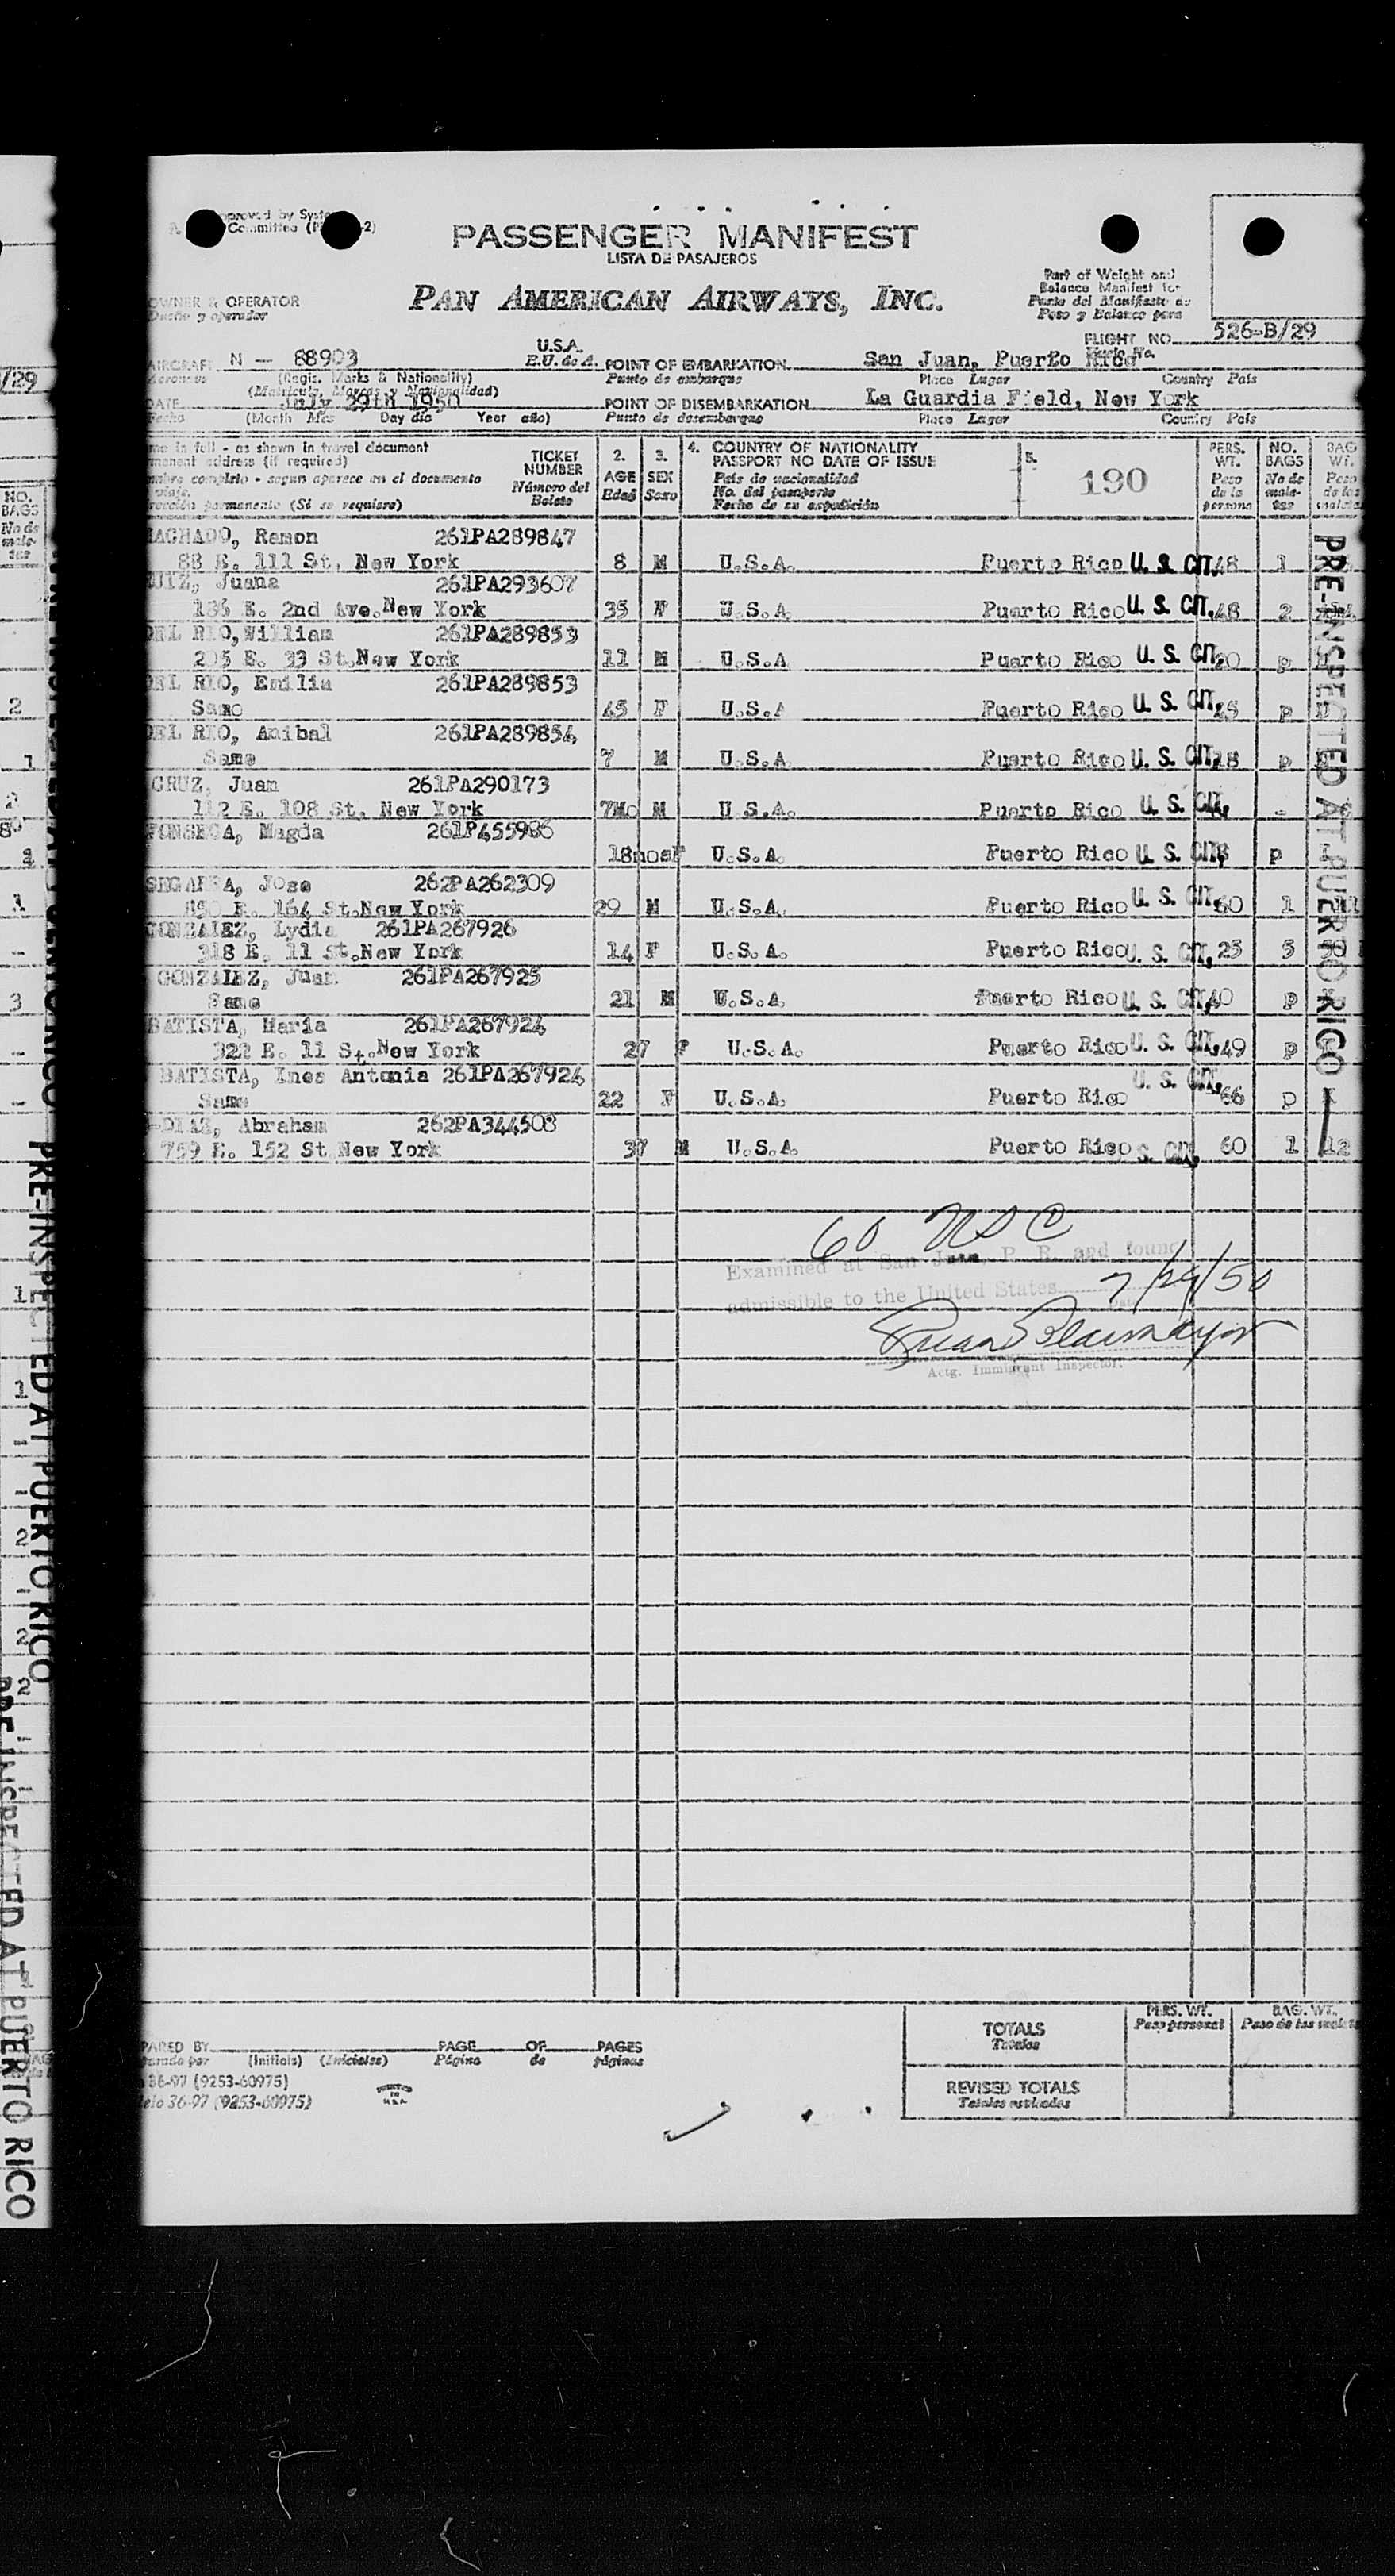 PASSENGER MANIFEST
LISTA DE PASAJEROS
PAN AMERICAN AIRWAYS, INC.
OWNER & OPERATOR
Dueño y operador
Part of Weight and
Balance Manifest for
Parte del Manifiesto de
Peso y Balance para
FLIGHT NO. 526-B/29
AIRCRAFT N - 88903 U.S.A. POINT OF EMBARKATION San Juan, Puerto Rico
Aeronave (Regis. Marks & Nationality) E.U. de A. Punto de embarque Place Lugar Country País
(Matrícula, Marcas y Nacionalidad)
DATE July 29th 1950 POINT OF DISEMBARKATION La Guardia Field, New York
Fecha (Month Mes Day día Year año) Punto de desembarque Place Lugar Country País
me in full - as shown in travel document
manent address (if required)
mbre completo - segun aparece en el documento
viaje.
rección permanente (Si se requiere)
TICKET NUMBER
Número del Boleto
2. AGE Edad
3. SEX Sexo
4. COUNTRY OF NATIONALITY
PASSPORT NO DATE OF ISSUE
País de nacionalidad
No. del pasaporte
Fecha de su expedición
5. 190
PERS. WT. Peso de la persona
NO. BAGS No de maletas
BAG WT. Peso de las
MACHADO, Ramon 261PA289847
88 E. 111 St. New York 8 M U.S.A. Puerto Rico U. S. CIT. 48 1
RUIZ, Juana 261PA293607
186 E. 2nd Ave. New York 35 F U.S.A. Puerto Rico U. S. CIT. 48 2
DEL RIO, William 261PA289853
205 E. 33 St. New York 11 M U.S.A Puerto Rico U. S. CIT. p
DEL RIO, Emilia 261PA289853
Same 45 F U.S.A Puerto Rico U. S. CIT. p
DEL RIO, Anibal 261PA289854
Same 7 M U.S.A Puerto Rico U. S. CIT. 18 p
CRUZ, Juan 261PA290173
112 E. 108 St. New York 7Mo M U.S.A. Puerto Rico U. S. CIT. -
FONSECA, Magda 261P455986
18mos F U.S.A. Puerto Rico U. S. CIT. p
SEGARRA, Jose 262PA262309
890 E. 164 St. New York 29 M U.S.A. Puerto Rico U. S. CIT. 60 1
GONZALEZ, Lydia 261PA267926
318 E. 11 St. New York 14 F U.S.A. Puerto Rico U. S. CIT. 25 5
GONZALEZ, Juan 261PA267925
Same 21 M U.S.A. Puerto Rico U. S. CIT. 40 p
BATISTA, Maria 261PA267924
322 E. 11 St. New York 27 F U.S.A. Puerto Rico U. S. CIT. 49 p
BATISTA, Ines Antonia 261PA267924
Same 22 F U.S.A. Puerto Rico U. S. CIT. 66 p
DIAZ, Abraham 262PA344508
759 E. 152 St New York 37 M U.S.A. Puerto Rico S. CIT. 60 1 12
PRE-INSPECTED AT PUERTO RICO
60 USC
Examined at San Juan, P. R. and found
admissible to the United States 7/29/50
Actg. Immigrant Inspector.
PARED BY (Initials) (Iniciales) PAGE OF PAGES
Página de páginas
36-97 (9253-60975)
36-97 (9253-60975)
PRINTED IN U.S.A.
TOTALS
Totales
REVISED TOTALS
Totales revisados
PERS. WT. Peso personal
BAG. WT.
/29
NO. BAGS
No de
PRE-INSPECTED AT PUERTO RICO
PRE-INSPECTED AT PUERTO RICO